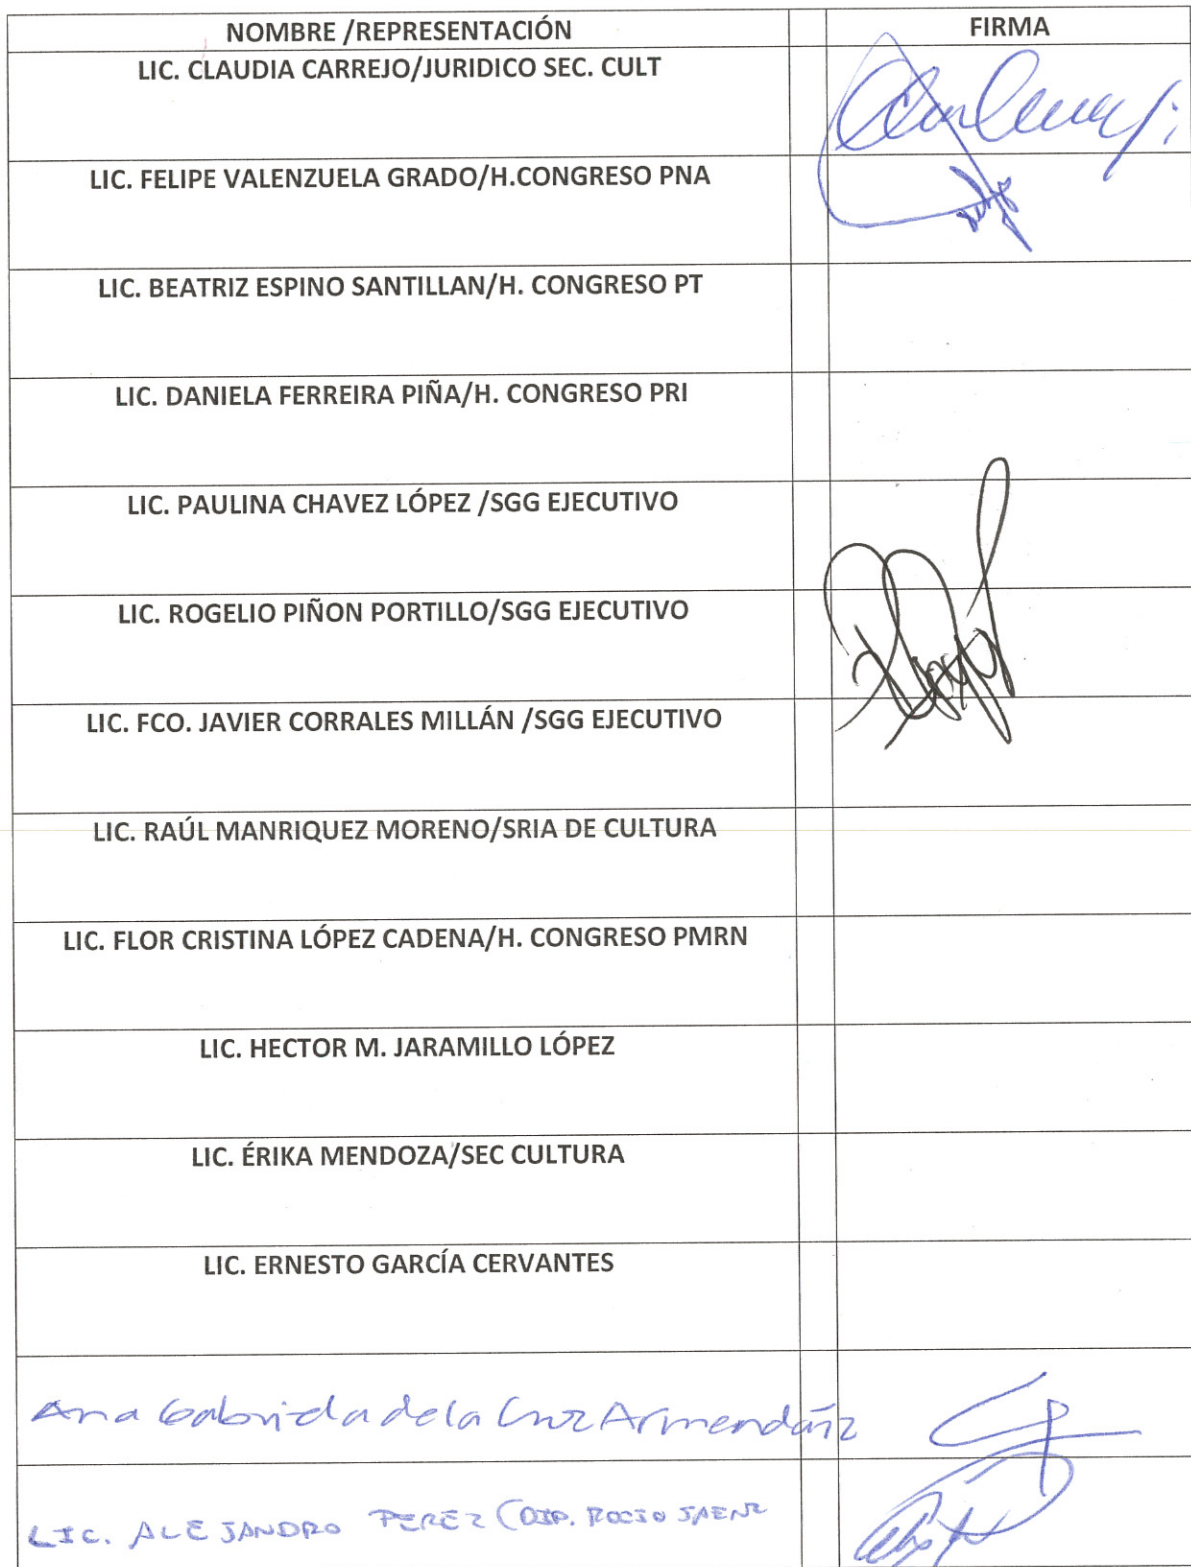 NOMBRE /REPRESENTACIÓN FIRMA
LIC. CLAUDIA CARREJO/JURIDICO SEC. CULT
LIC. FELIPE VALENZUELA GRADO/H.CONGRESO PNA
LIC. BEATRIZ ESPINO SANTILLAN/H. CONGRESO PT
LIC. DANIELA FERREIRA PIÑA/H. CONGRESO PRI
LIC. PAULINA CHAVEZ LÓPEZ /SGG EJECUTIVO
LIC. ROGELIO PIÑON PORTILLO/SGG EJECUTIVO
LIC. FCO. JAVIER CORRALES MILLÁN /SGG EJECUTIVO
LIC. RAÚL MANRIQUEZ MORENO/SRIA DE CULTURA
LIC. FLOR CRISTINA LÓPEZ CADENA/H. CONGRESO PMRN
LIC. HECTOR M. JARAMILLO LÓPEZ
LIC. ÉRIKA MENDOZA/SEC CULTURA
LIC. ERNESTO GARCÍA CERVANTES
Ana Gabriela de la Cruz Armendáriz
LIC. ALEJANDRO PEREZ (DIP. ROCIO SAENZ